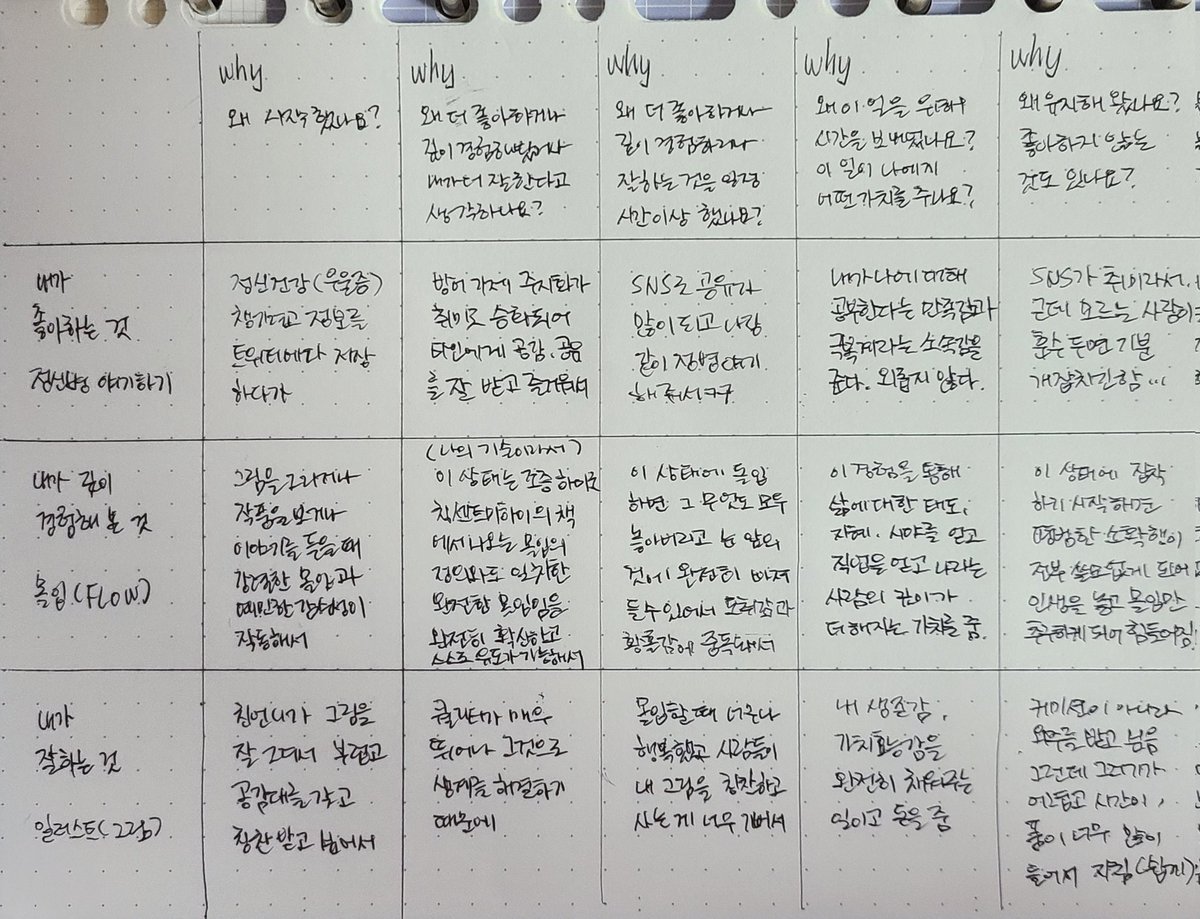 why
왜 시작했나요?
why
왜 더 좋아하거나
깊이 경험해봤거나
내가 더 잘한다고
생각하나요?
why
왜 더 좋아하거나
깊이 경험하거나
잘하는 것을 일정
시간 이상 했나요?
why
왜 이 일을
시간을 보내었나요?
이 일이 나에게
어떤 가치를 주나요?
why
왜 유지해 왔나요?
좋아하지 않는
것도 있나요?
내가
좋아하는 것
정신병 얘기하기
정신건강(우울증)
챙기려고 정보를
트위터에다 저장
하다가
방어기제 주지화가
취미로 승화되어
타인에게 공감, 공유
를 잘 받고 즐거워서
SNS로 공유가
많이 되고 나랑
같이 정병얘기
해줘서 ㅋㅋ
내가 나에 대해
공부한다는 만족감과
계라는 소속감을
준다. 외롭지 않다.
SNS가 취미라서..
근데 모르는 사람이
훈수 두면 기분
개잡차진함...
내가 깊이
경험해 본 것
몰입(FLOW)
그림을 그리거나
작품을 보거나
이야기를 들을 때
강렬한 몰입과
예민한 감수성이
작동해서
(나의 기술이라서)
이 상태는
칙센트미하이의 책
에서 나오는 몰입의
정의와도 일치한
완전한 몰입임을
완전히 확신하고
스스로 유도가 가능해서
이 상태에 돌입
하면 그 무엇도 모두
놓아버리고 눈 앞의
것에 완전히 빠져
들 수 있어서 도취감과
황홀감에 중독되서
이 경험을 통해
삶에 대한 태도,
지혜, 시야를 얻고
직업을 얻고 나라는
사람의 깊이가
더해지는 가치를 줌.
이 상태에 집착
하기 시작해선
평범한 소확행이
전부 쓸모없게 되어
인생을 놓고 몰입만
추구하게 되어 힘들어짐!
내가
잘하는 것
일러스트(그림)
친언니가 그림을
잘 그려서 부럽고
공감대를 갖고
칭찬 받고 싶어서
퀄리티가 매우
뛰어나 그것으로
생계를 해결하기
때문에
몰입할 때 너무나
행복했고 사람들이
내 그림을 칭찬하고
사는 게 너무 기뻐서
내 생존감,
가치효능감을
완전히 채워주는
일이고 돈을 줌
커미션이 아니라
외주를 받고 싶음
그런데 그러기가
어렵고 시간이,
품이 너무 많이
들어서 자립